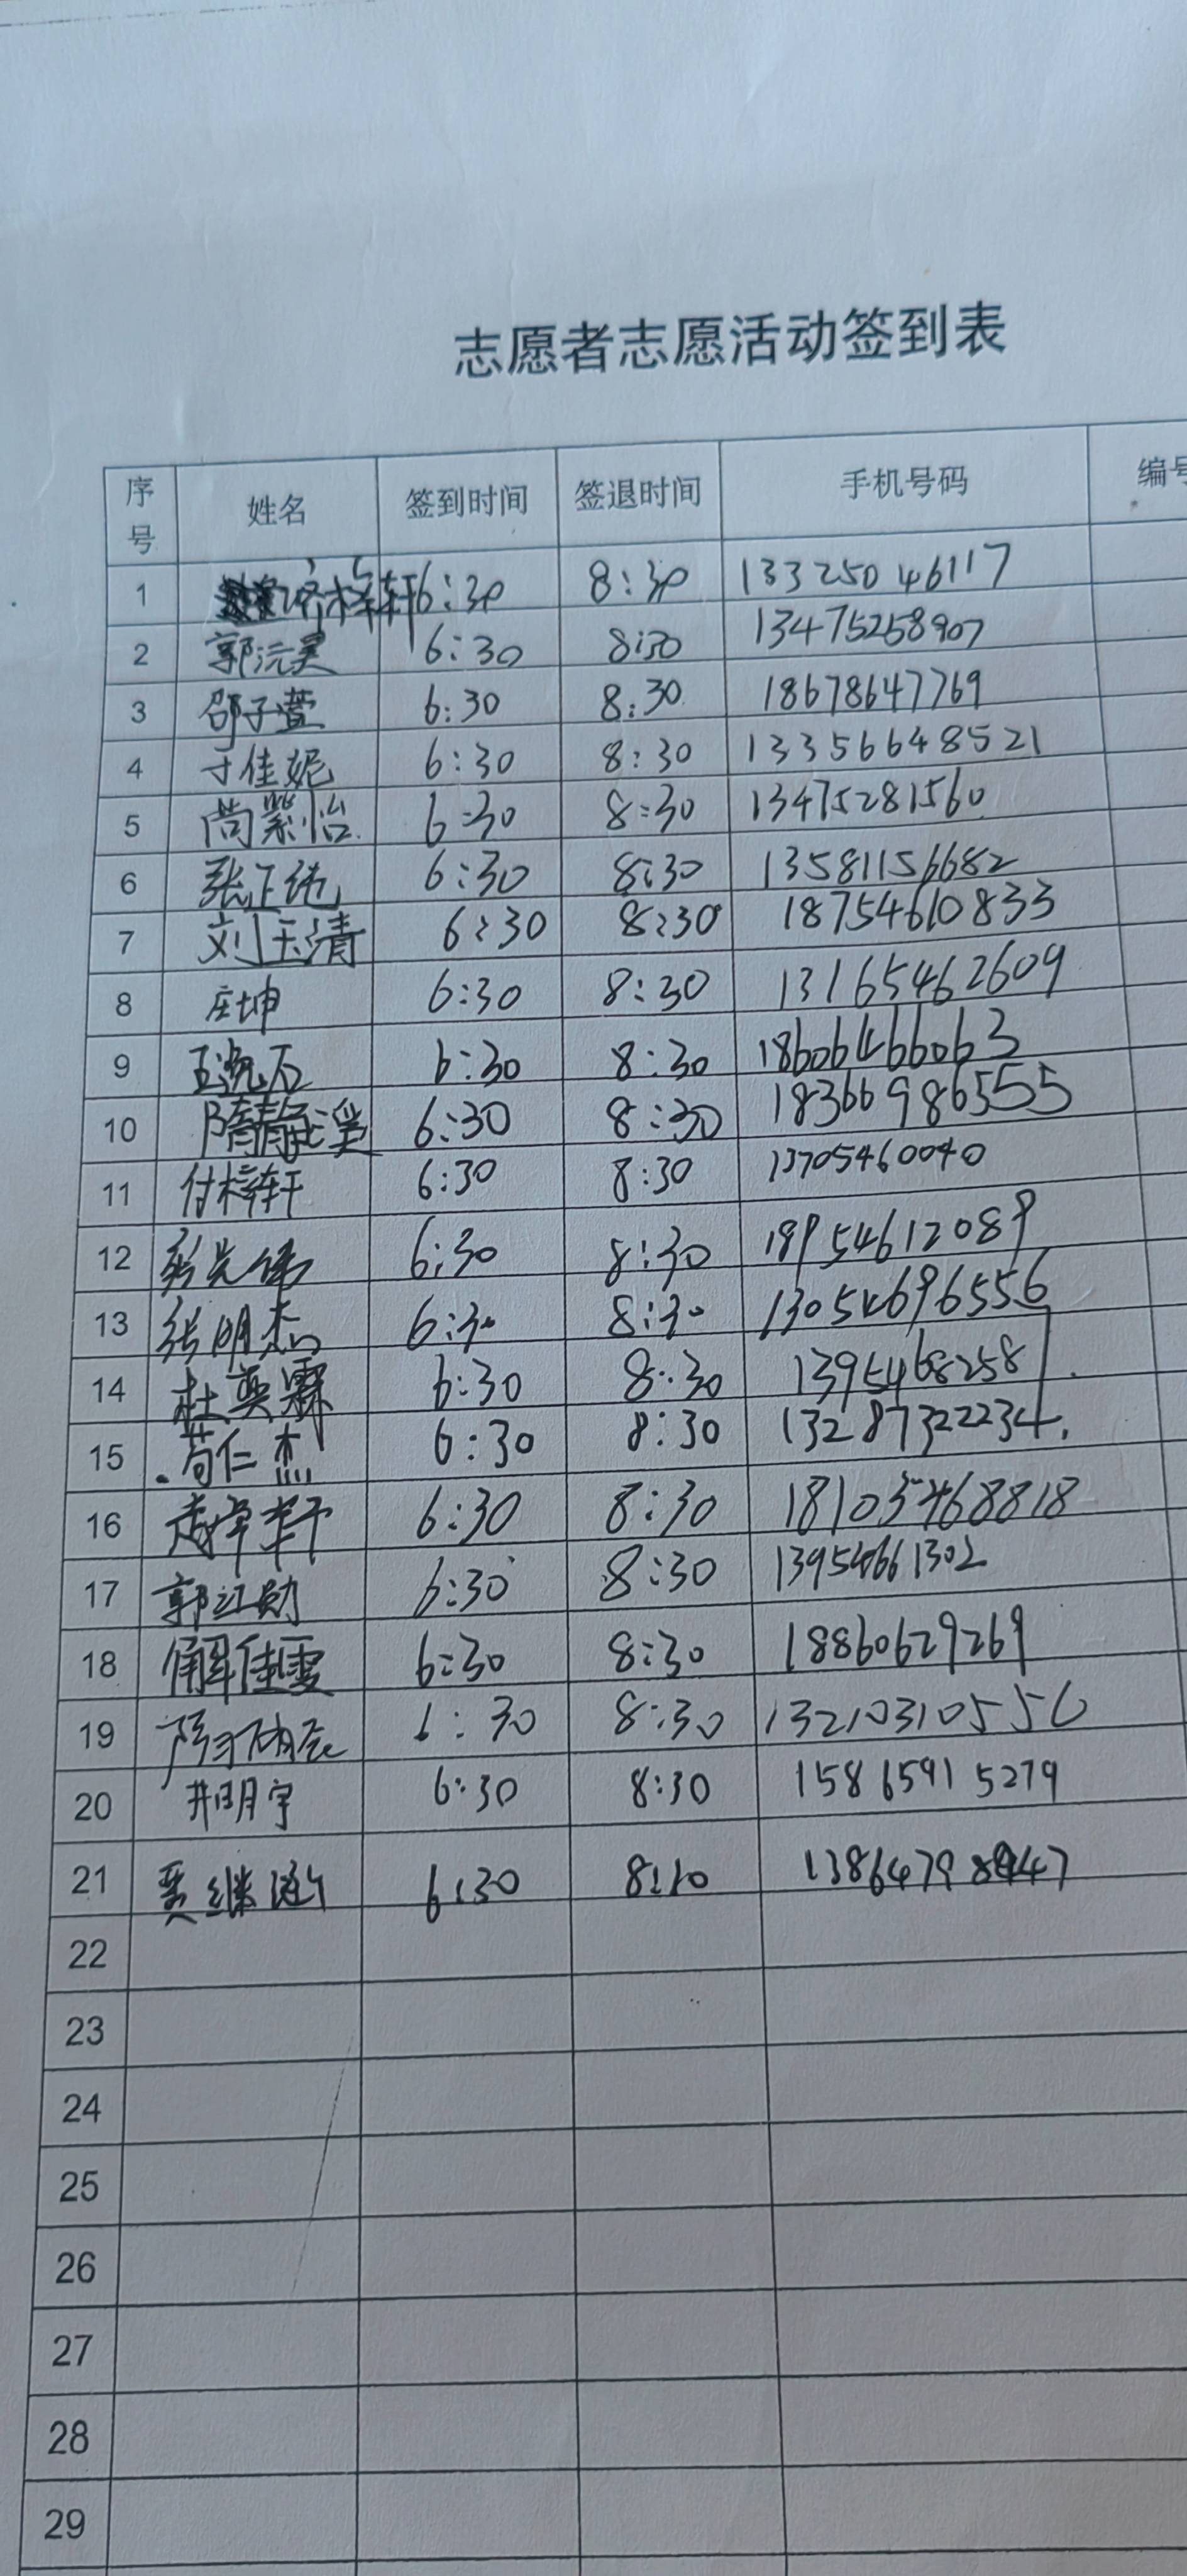 志愿者志愿活动签到表
序号 姓名 签到时间 签退时间 手机号码 编号
1 6:30 8:30 13325046117
2 郭沅昊 6:30 8:30 13475258907
3 邵子萱 6:30 8:30 18678647769
4 于佳妮 6:30 8:30 13356648521
5 尚紫怡 6:30 8:30 13475281560
6 6:30 8:30 13581156682
7 刘玉清 6:30 8:30 18754610833
8 庄坤 6:30 8:30 13165462609
9 6:30 8:30 18606466063
10 隋静溪 6:30 8:30 18366986555
11 付梓轩 6:30 8:30 13705460040
12 6:30 8:30 18954612089
13 张明杰 6:30 8:30 13054696556
14 杜奕霖 6:30 8:30 13954682581
15 苟仁杰 6:30 8:30 13287322234
16 6:30 8:30 18103468818
17 郭江勋 6:30 8:30 13954661302
18 解佳雯 6:30 8:30 18860629269
19 6:30 8:30 13210310556
20 井明宇 6:30 8:30 15865915279
21 6:30
22
23
24
25
26
27
28
29